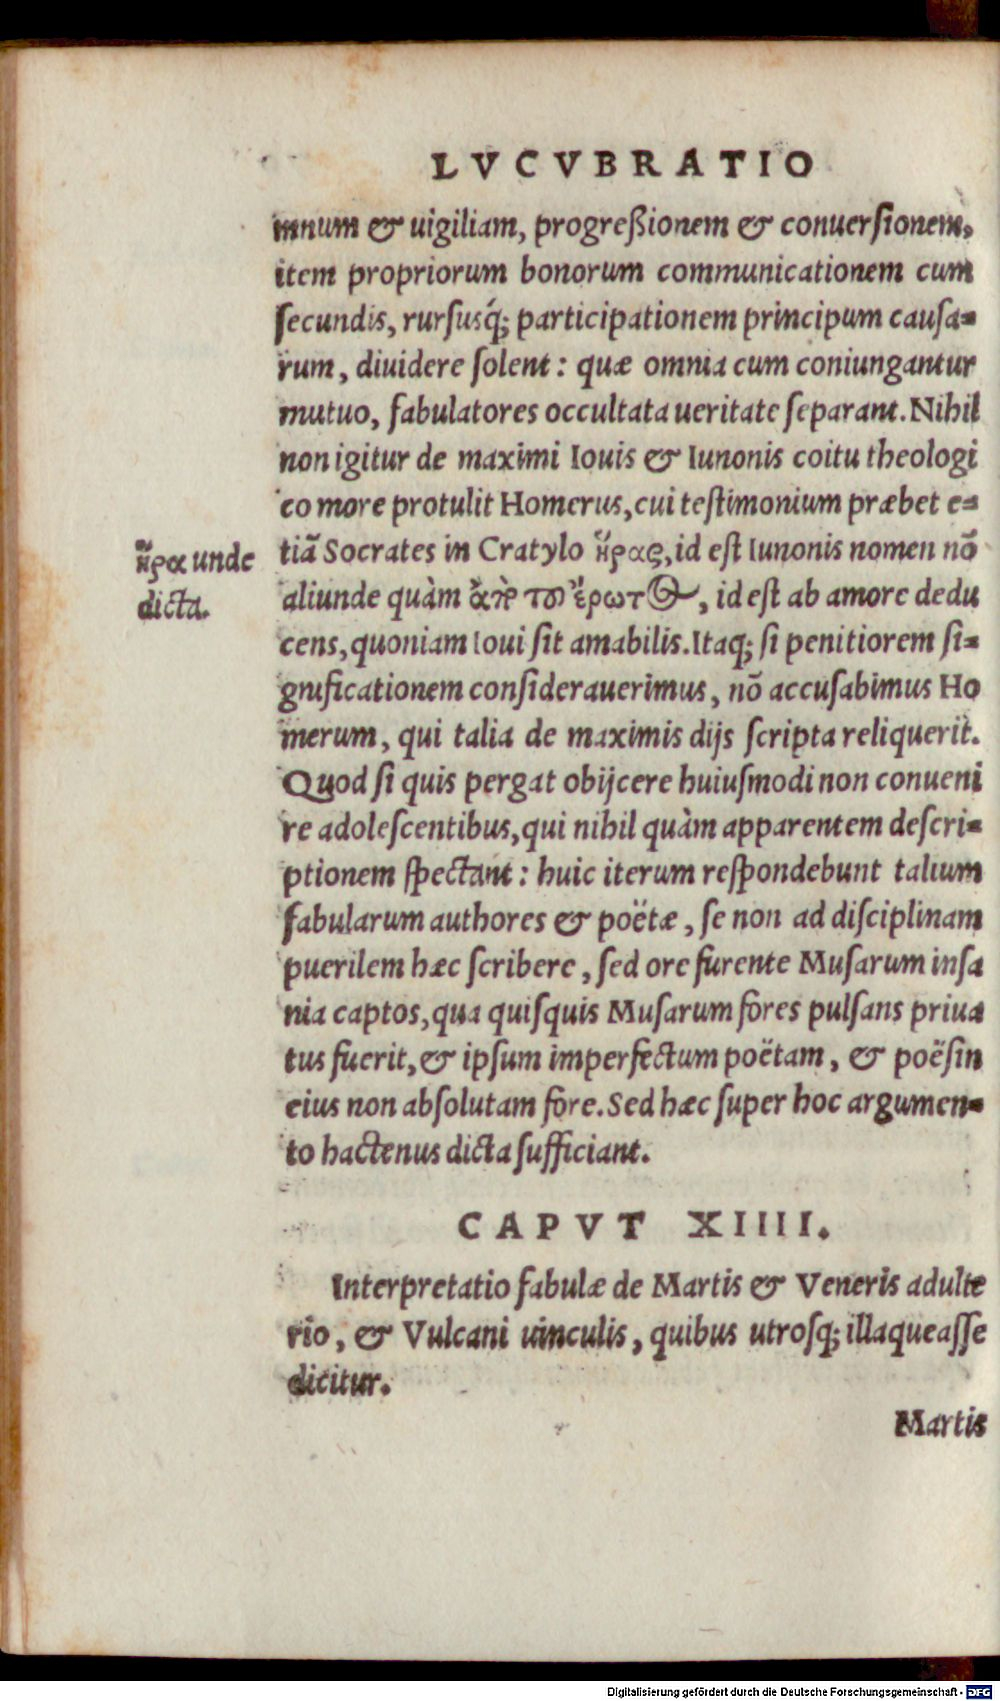 LVCVBRATIO
mnum & uigiliam, progreßionem & conuersionem,
item propriorum bonorum communicationem cum
secundis, rursusq́; participationem principum causa-
rum, diuidere solent: quæ omnia cum coniungantur
mutuo, fabulatores occultata ueritate separant. Nihil
non igitur de maximi Iouis & Iunonis coitu theologi
co more protulit Homerus, cui testimonium præbet e-
tiã Socrates in Cratylo ἥρας, id est Iunonis nomen nõ
aliunde quàm ἀπὸ τοῦ ἔρωτος, id est ab amore dedu
cens, quoniam Ioui sit amabilis. Itaq; si penitiorem si-
gnificationem considerauerimus, nõ accusabimus Ho
merum, qui talia de maximis dijs scripta reliquerit.
Quod si quis pergat obijcere huiusmodi non conueni
re adolescentibus, qui nihil quàm apparentem descri-
ptionem spectant: huic iterum respondebunt talium
fabularum authores & poëtæ, se non ad disciplinam
puerilem hæc scribere, sed ore furente Musarum insa
nia captos, qua quisquis Musarum fores pulsans priua
tus fuerit, & ipsum imperfectum poëtam, & poësin
eius non absolutam fore. Sed hæc super hoc argumen-
to hactenus dicta sufficiant.
ἥρα unde
dicta.
CAPVT XIIII.
Interpretatio fabulæ de Martis & Veneris adulte
rio, & Vulcani uinculis, quibus utrosq; illaqueasse
dicitur.
Martis
Digitalisierung gefördert durch die Deutsche Forschungsgemeinschaft - DFG